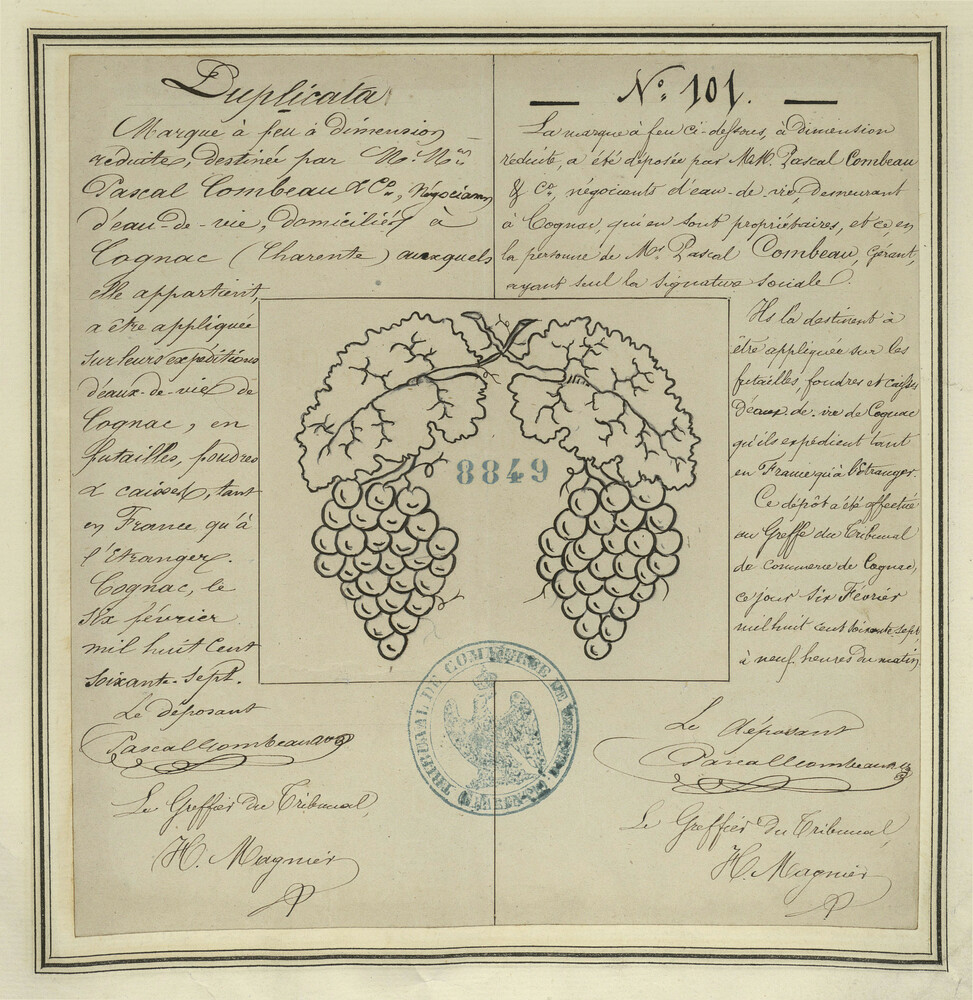 Duplicata
Marque à feu à dimension
réduite, destinée par M.rs
Pascal Combeau & Co, Négociants
d'eau-de-vie, domiciliés à
Cognac (Charente) auxquels
elle appartient,
a être appliquée
sur leurs expéditions
d'eaux-de-vie de
Cognac, en
futailles, foudres
& caisses, tant
en France qu'à
l'Etranger.
Cognac, le
six février
mil huit Cent
soixante-sept.
Le déposant
Pascal Combeau & Co
Le Greffier du Tribunal,
H. Magnier
8849
N.o 101.
La marque à feu ci-dessous, à dimension
réduite, a été déposée par M.M. Pascal Combeau
& Co, négociants d'eau-de-vie, Demeurant
à Cognac, qui en sont propriétaires, et ce, en
la personne de Mr Pascal Combeau, Gérant,
ayant seul la signature sociale.
Ils la destinent à
être appliquée sur les
futailles, foudres et caisses
D'eaux-de-vie de Cognac
qu'ils expédient tant
en France qu'à l'étranger.
Ce dépôt a été effectué
au Greffe du Tribunal
de Commerce de Cognac,
ce jour six Février
mil huit cent soixante sept,
à neuf heures du matin.
Le déposant
Pascal Combeau & Co
Le Greffier du Tribunal,
H. Magnier
TRIBUNAL DE COMMERCE DE